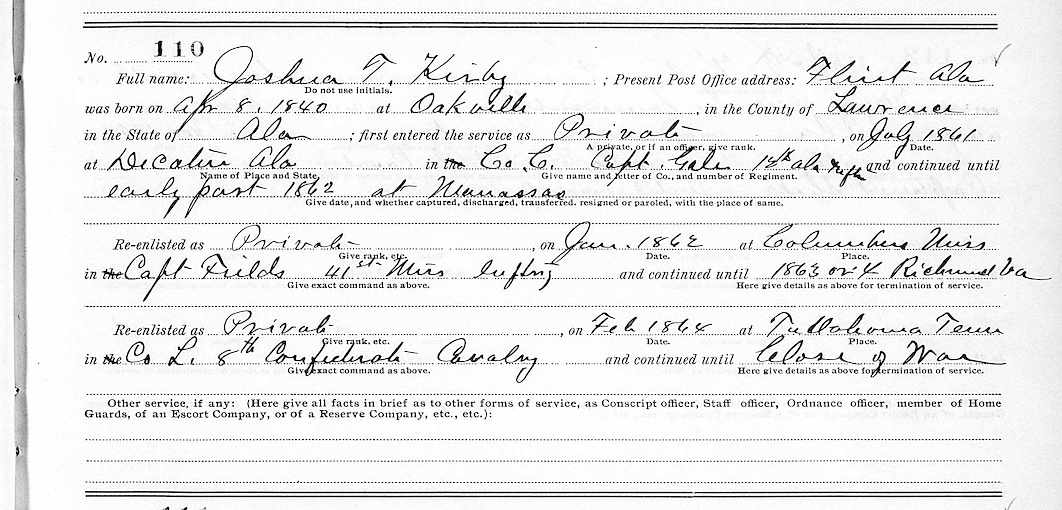 No. 110
Full name: Joshua T. Kirby ; Present Post Office address: Flint Ala
Do not use initials.
was born on Apr 8, 1840 at Oakville , in the County of Lawrence
in the State of Ala ; first entered the service as Private , on July 1861
A private, or if an officer, give rank. Date.
at Decatur Ala in the Co C. Capt Gale Ala and continued until
Name of Place and State. Give name and letter of Co., and number of Regiment.
early part 1862 at Manassas
Give date, and whether captured, discharged, transferred, resigned or paroled, with the place of same.
Re-enlisted as Private , on Jan. 1862 at Columbus Miss
Give rank, etc. Date. Place.
in the Capt Fields 41st Miss Inftry and continued until 1863 or 4 Richmond Va
Give exact command as above. Here give details as above for termination of service.
Re-enlisted as Private , on Feb 1864 at Tullahoma Tenn
Give rank, etc. Date. Place.
in the Co L. 8th Confederate Cavalry and continued until Close of War
Give exact command as above. Here give details as above for termination of service.
Other service, if any: (Here give all facts in brief as to other forms of service, as Conscript officer, Staff officer, Ordnance officer, member of Home
Guards, of an Escort Company, or of a Reserve Company, etc., etc.):